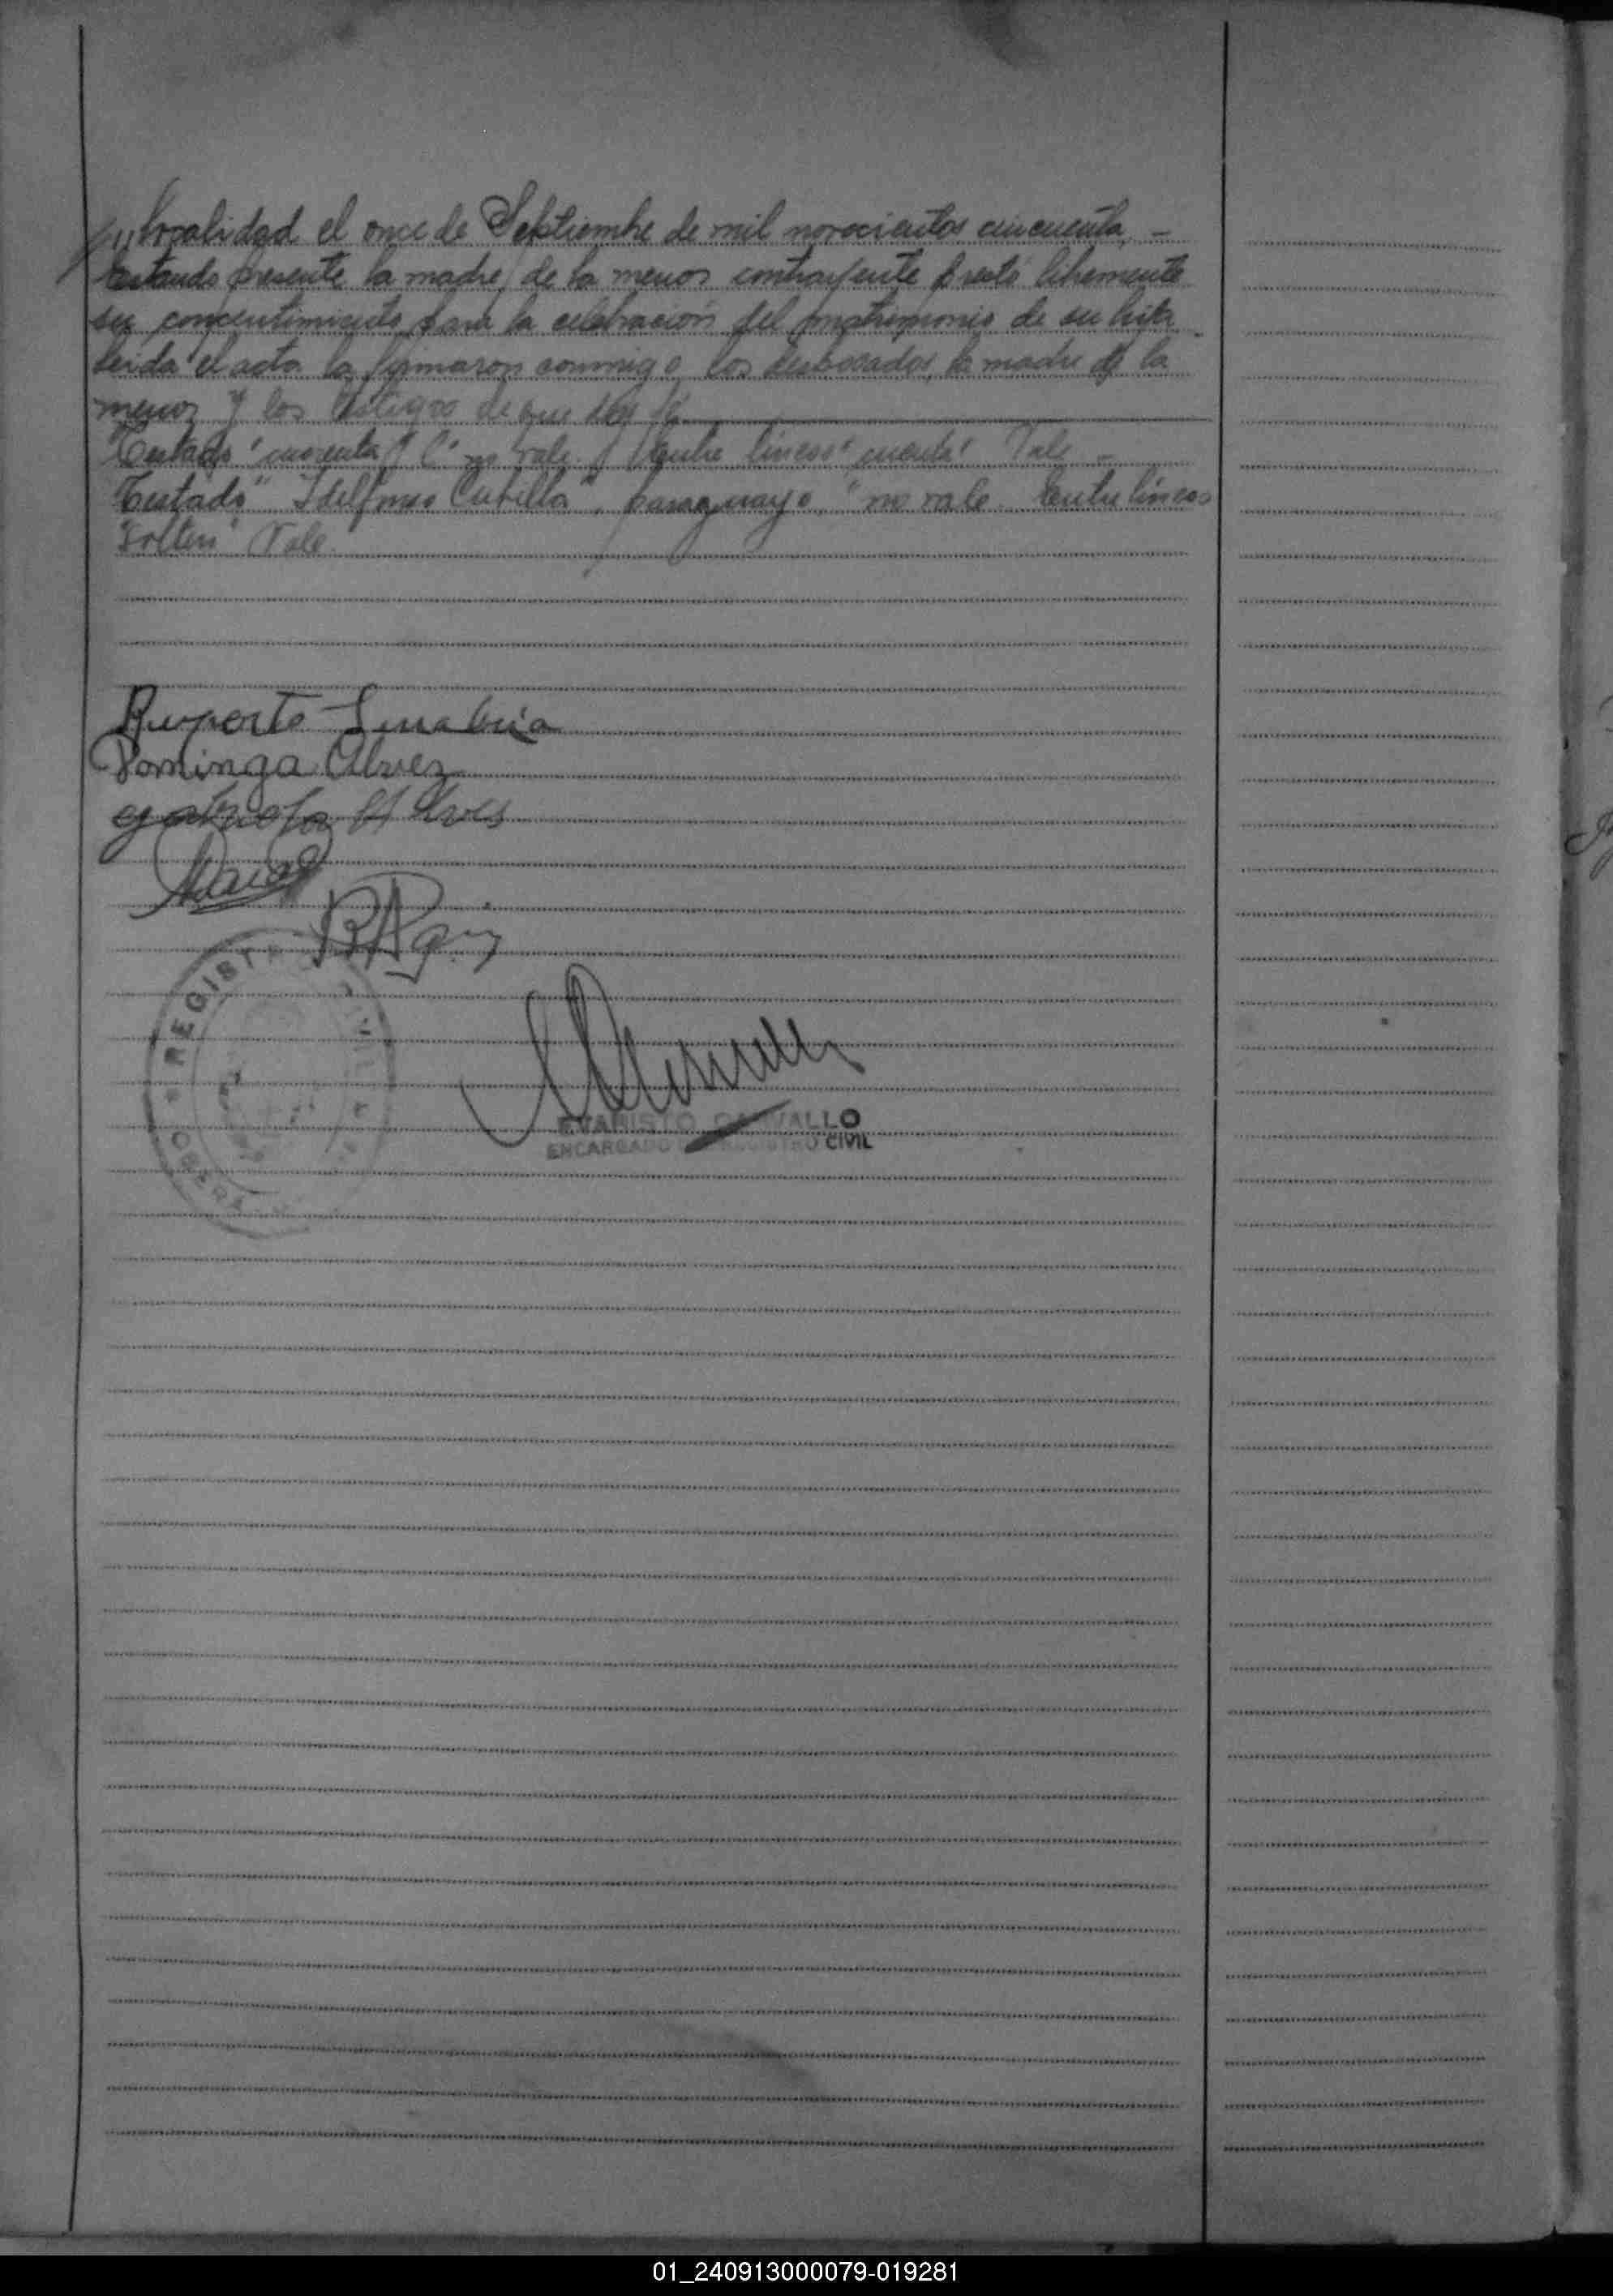 localidad el once de Septiembre de mil novecientos cincuenta, -
Estando presente la madre de la menor contrayente prestó libremente
su concentimiento para la celebración del matrimonio de su hija.
Leida el acta la firmaron conmigo los desposados, la madre de la
menor y los testigos de que doy fé
Testado "cuarenta y C" no vale. Y Entre lineas "cuenta" Vale -
Testado" Idelfonso Cubilla", paraguayo, "no vale. Entre lineas
Vale.
Ruperto
Dominga Alvez
Alves
REGISTRO CIVIL
OBERA
EVARISTO CARVALLO
ENCARGADO DEL REGISTRO CIVIL
01_240913000079-019281